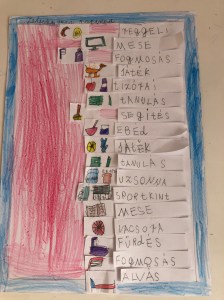 REGGELI
MESE
FOGMOSÁS
JÁTÉK
TÍZÓRAI
TANULÁS
SEGÍTÉS
EBÉD
JÁTÉK
TANULÁS
UZSONNA
SPORTKINT
MESE
VACSORA
FÜRDÉS
FOGMOSÁS
ALVÁS